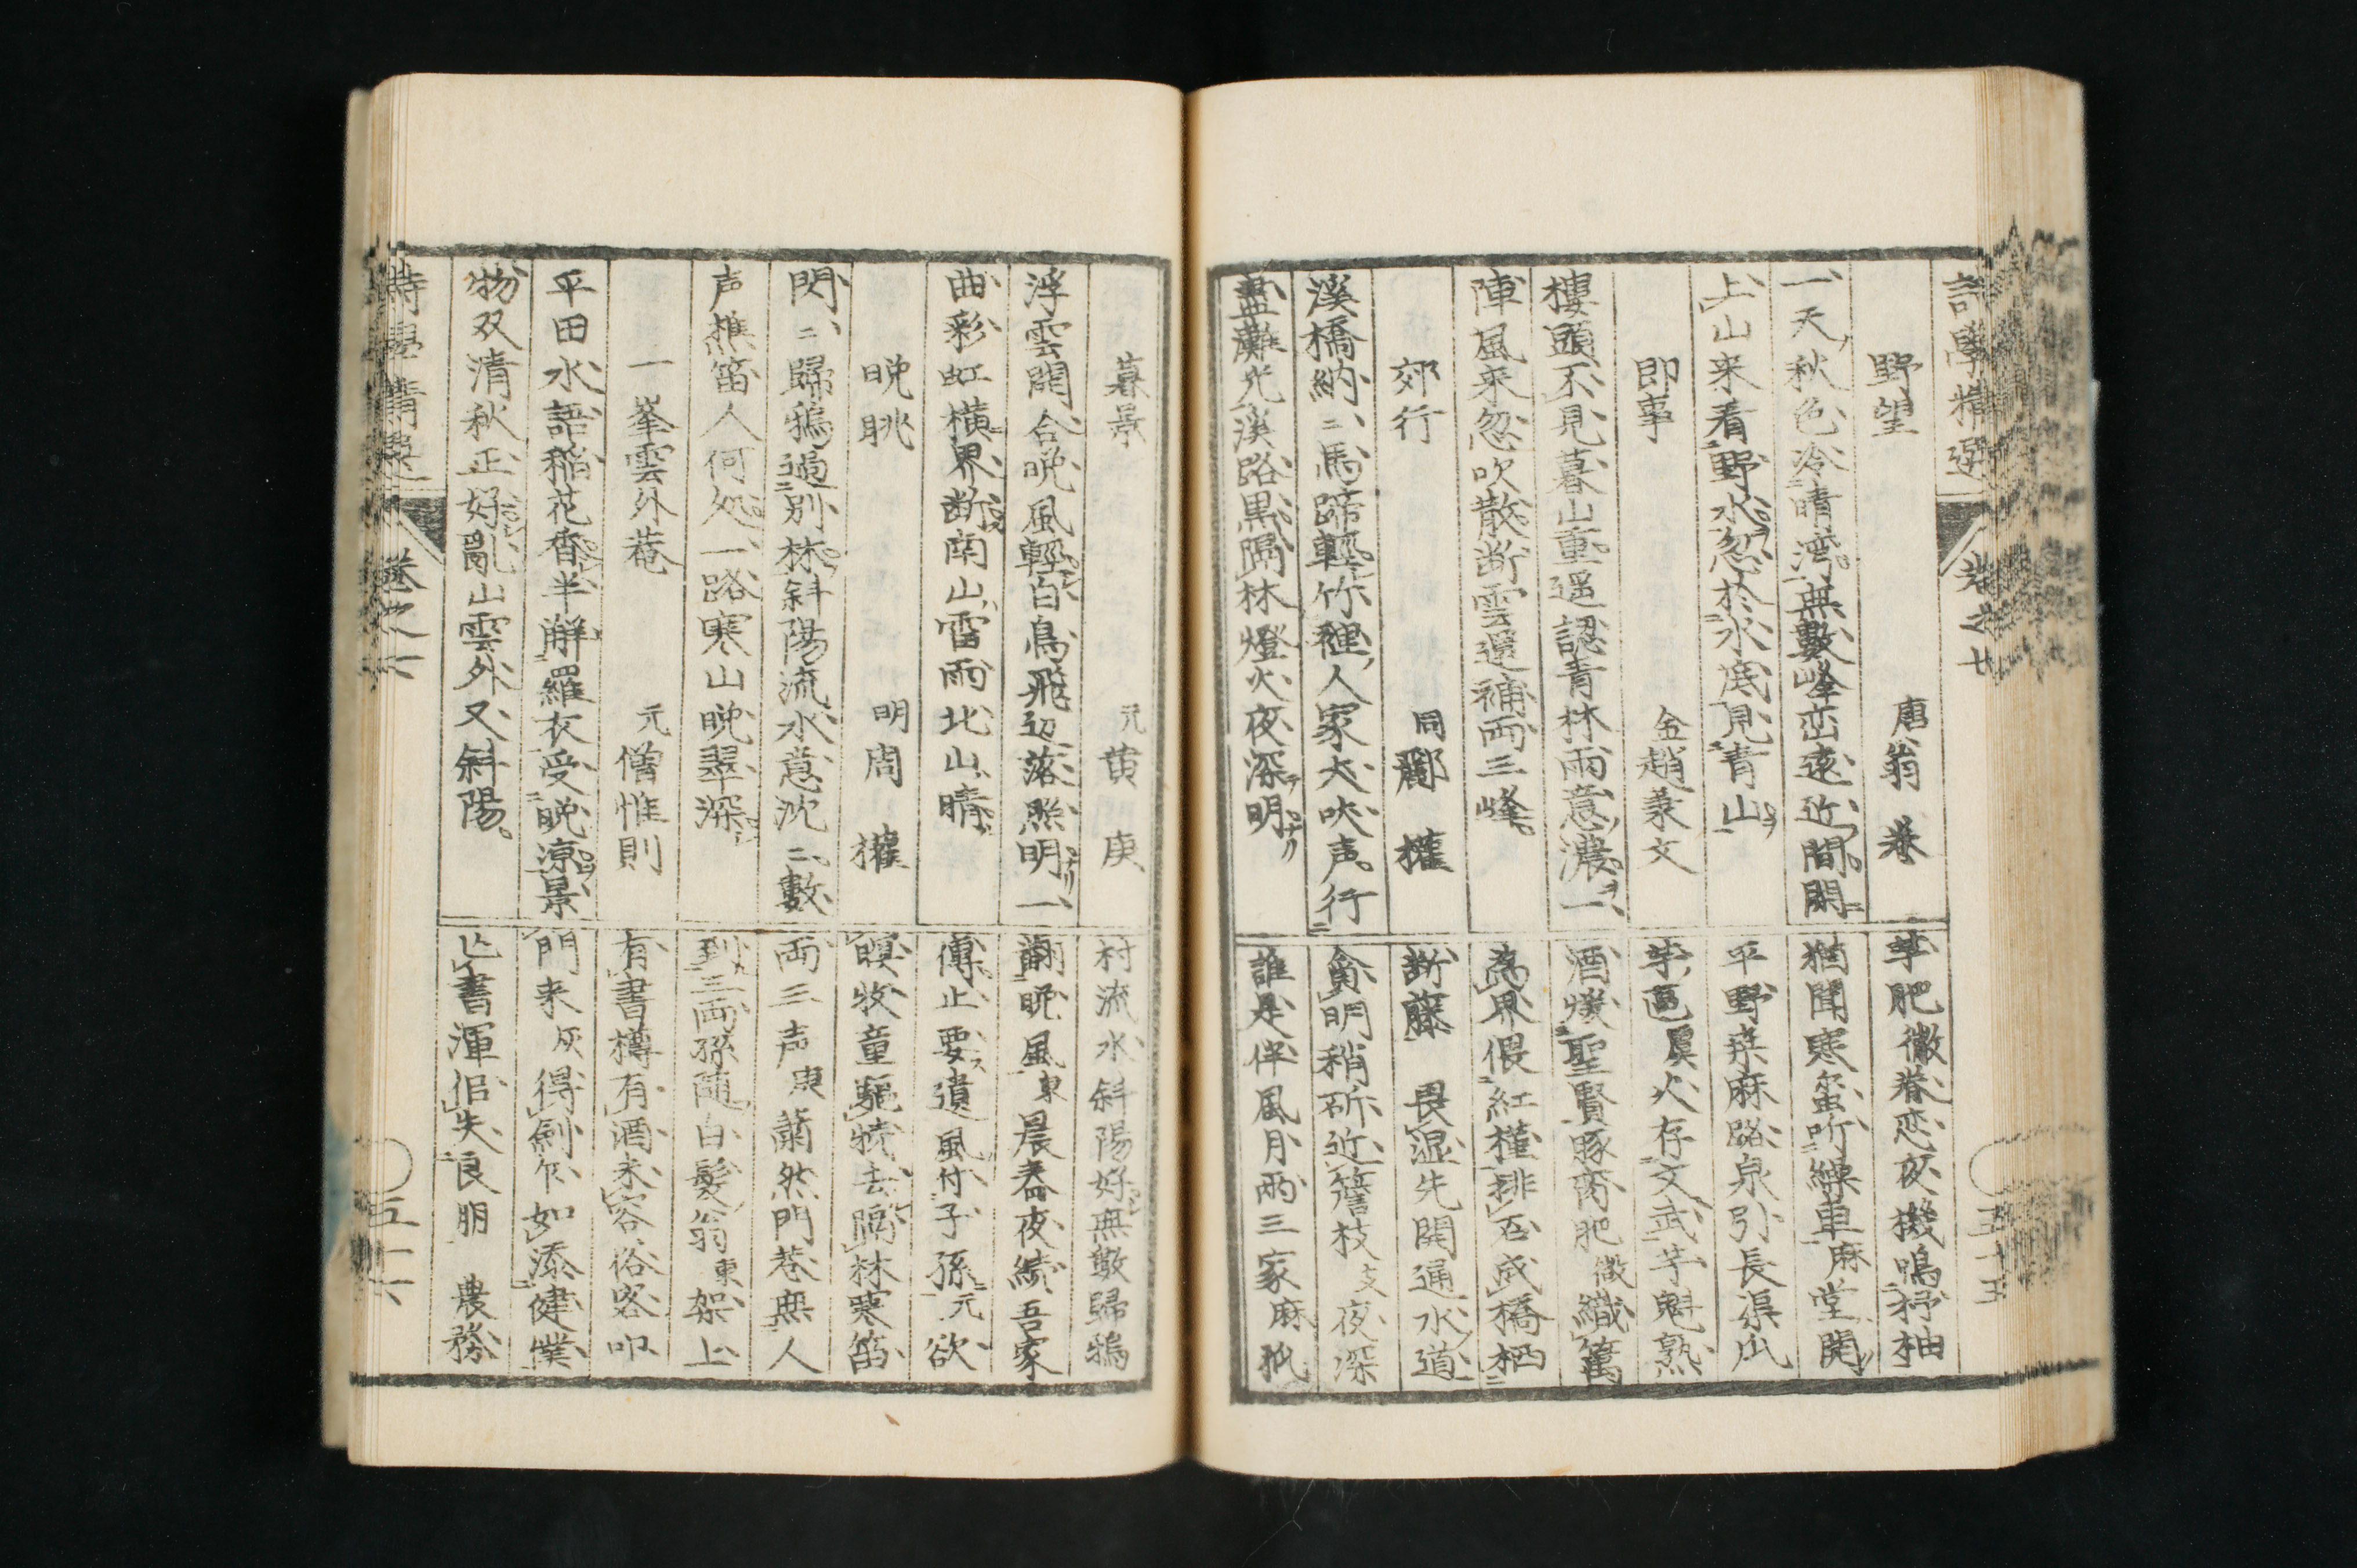 詩學精選 卷之 五十五
野望 唐翁卷
一天秋色冷晴湾無數峰巒遠近間閑
上山来看野水忽於水底見青山
即事 金趙秉文
樓頭不見暮山重遥認青林雨意濃一
陣風来忽吹散断雲還補両三峰
郊行 同酈權
溪橋納ニ馬蹄輕竹裡人家犬吠声行
盡灘光溪路黒隔林燈火夜深明
芋肥微眷恋夜機鳴抒柚
猶聞寒蛩吟繰車麻堂開
平野桑麻路泉引長渠瓜
芋區冥火存文武芋魁熟
酒煖聖賢豚脔肥微織篱
為界偎紅槿排石成橋栖
断藤 畏湿先開通水道
貪明稍斫近簷枝支夜深
誰是伴風月両三家麻孤
暮景 元黄庚
浮雲閑合晩風輕白鳥飛辺落照明一
曲彩虹横界断南山雷雨北山晴
晩眺 明周權
閃ニ歸鴉過別林斜陽流水意沈ニ數
声樵笛人何処一路寒山晩翠深
一峯雲外菴 元僧惟則
平田水語稲花香半解羅衣受晩凉景
物双清秋正好亂山雲外又斜陽
村流水斜陽好無數歸鴉
翻晩風東晨舂夜績吾家
傳止要遺風付子孫元欲
暝牧童驅犢去隔林寒笛
両三声庚蕭然門巷無人
到三両孫随白髪翁東架上
有書樽有酒未容俗客叩
門来灰得劍乍如添健僕
亡書渾佀失良朋 農務
詩學精選 卷之 五十六